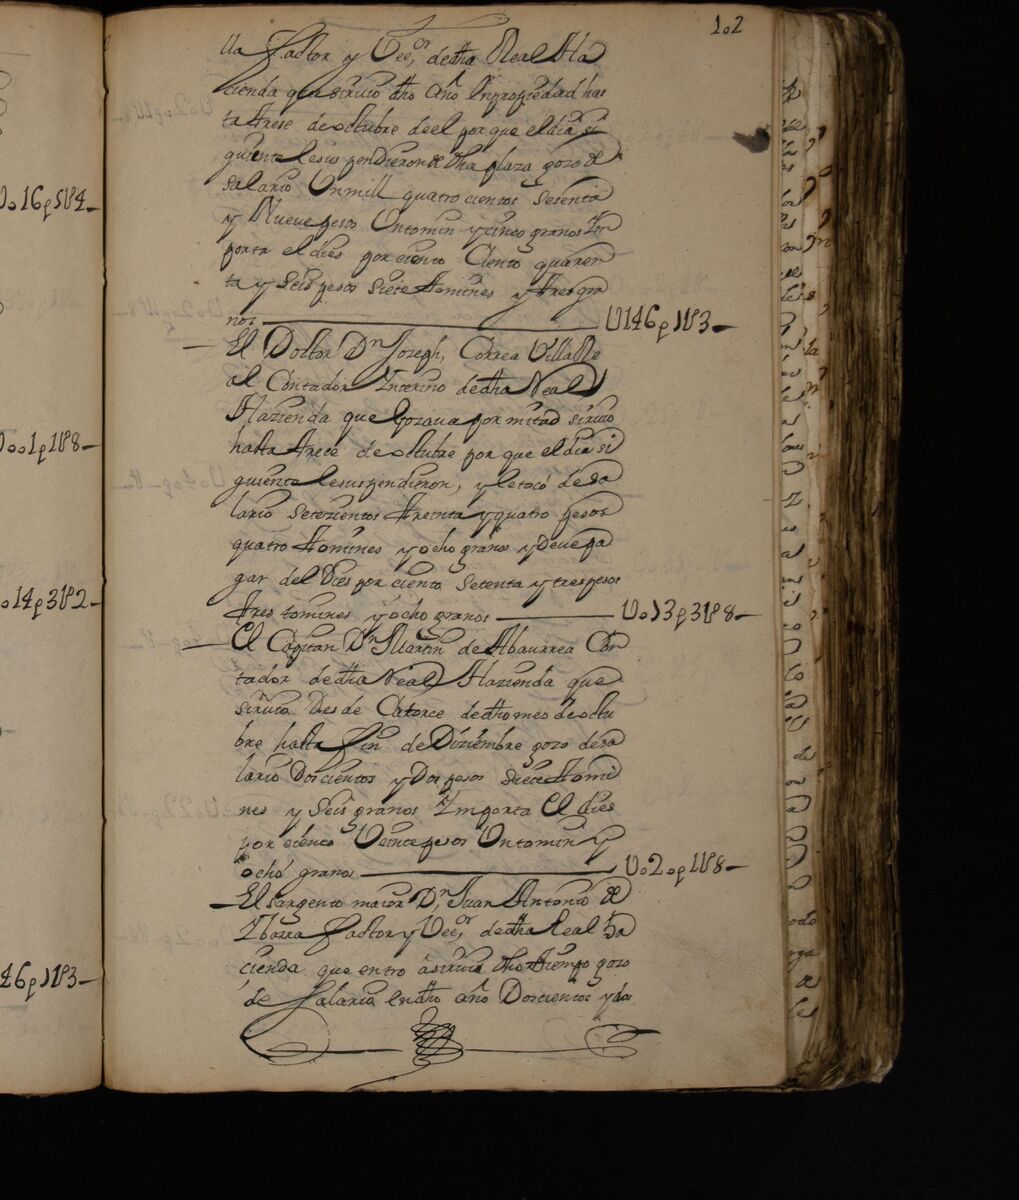 102
lla Factor y Vee.or de dha Real Ha
cienda que siruio dho Año En propiedad has
ta trese de octubre de el por que el dia si
guiente le sus pendieron de dha plaza gozo de
salario Un mill quatro cientos Sesenta
y Nueve pesos Un tomin y cinco granos Im
porta el dies por ciento Ciento quaren
ta y Seis pesos Siete tomines y tres gra
nos U146p7tt3
El Doctor Dn Joseph, Correa Villa Re
al Contador Interino de dha Real
Hazienda que gozaua por mitad siruio
hasta trece de octubre por que el dia si
guiente le suspendieron, y le toco de sa
lario Setezientos treinta y quatro pesos
quatro tomines y ocho granos y Deue pa
gar del Dies por ciento Setenta y tres pesos
tres tomines y ocho granos Uo73p3tt8
El Capitan Dn Martin de Abaurrea Con
tador de dha Real Hazienda que
siruio Des de Catorce de dho mes de octu
bre hasta fin de Diziembre gozo de sa
lario Dos cientos y Dos pesos Siete tomi
nes y Seis granos Importa El dies
por ciento Veinte pesos Un tomin y
ocho granos Uo2op1tt8
El sargento maior Dn Juan Antonio de
Ybarra Factor y Vee.or de dha Real ha
cienda que entro â siruir dho tiempo gozo
de Salario en dho año Doscientos y do
Uo16p5tt4
Uoo1p1tt8
o14p3tt2
46p7tt3